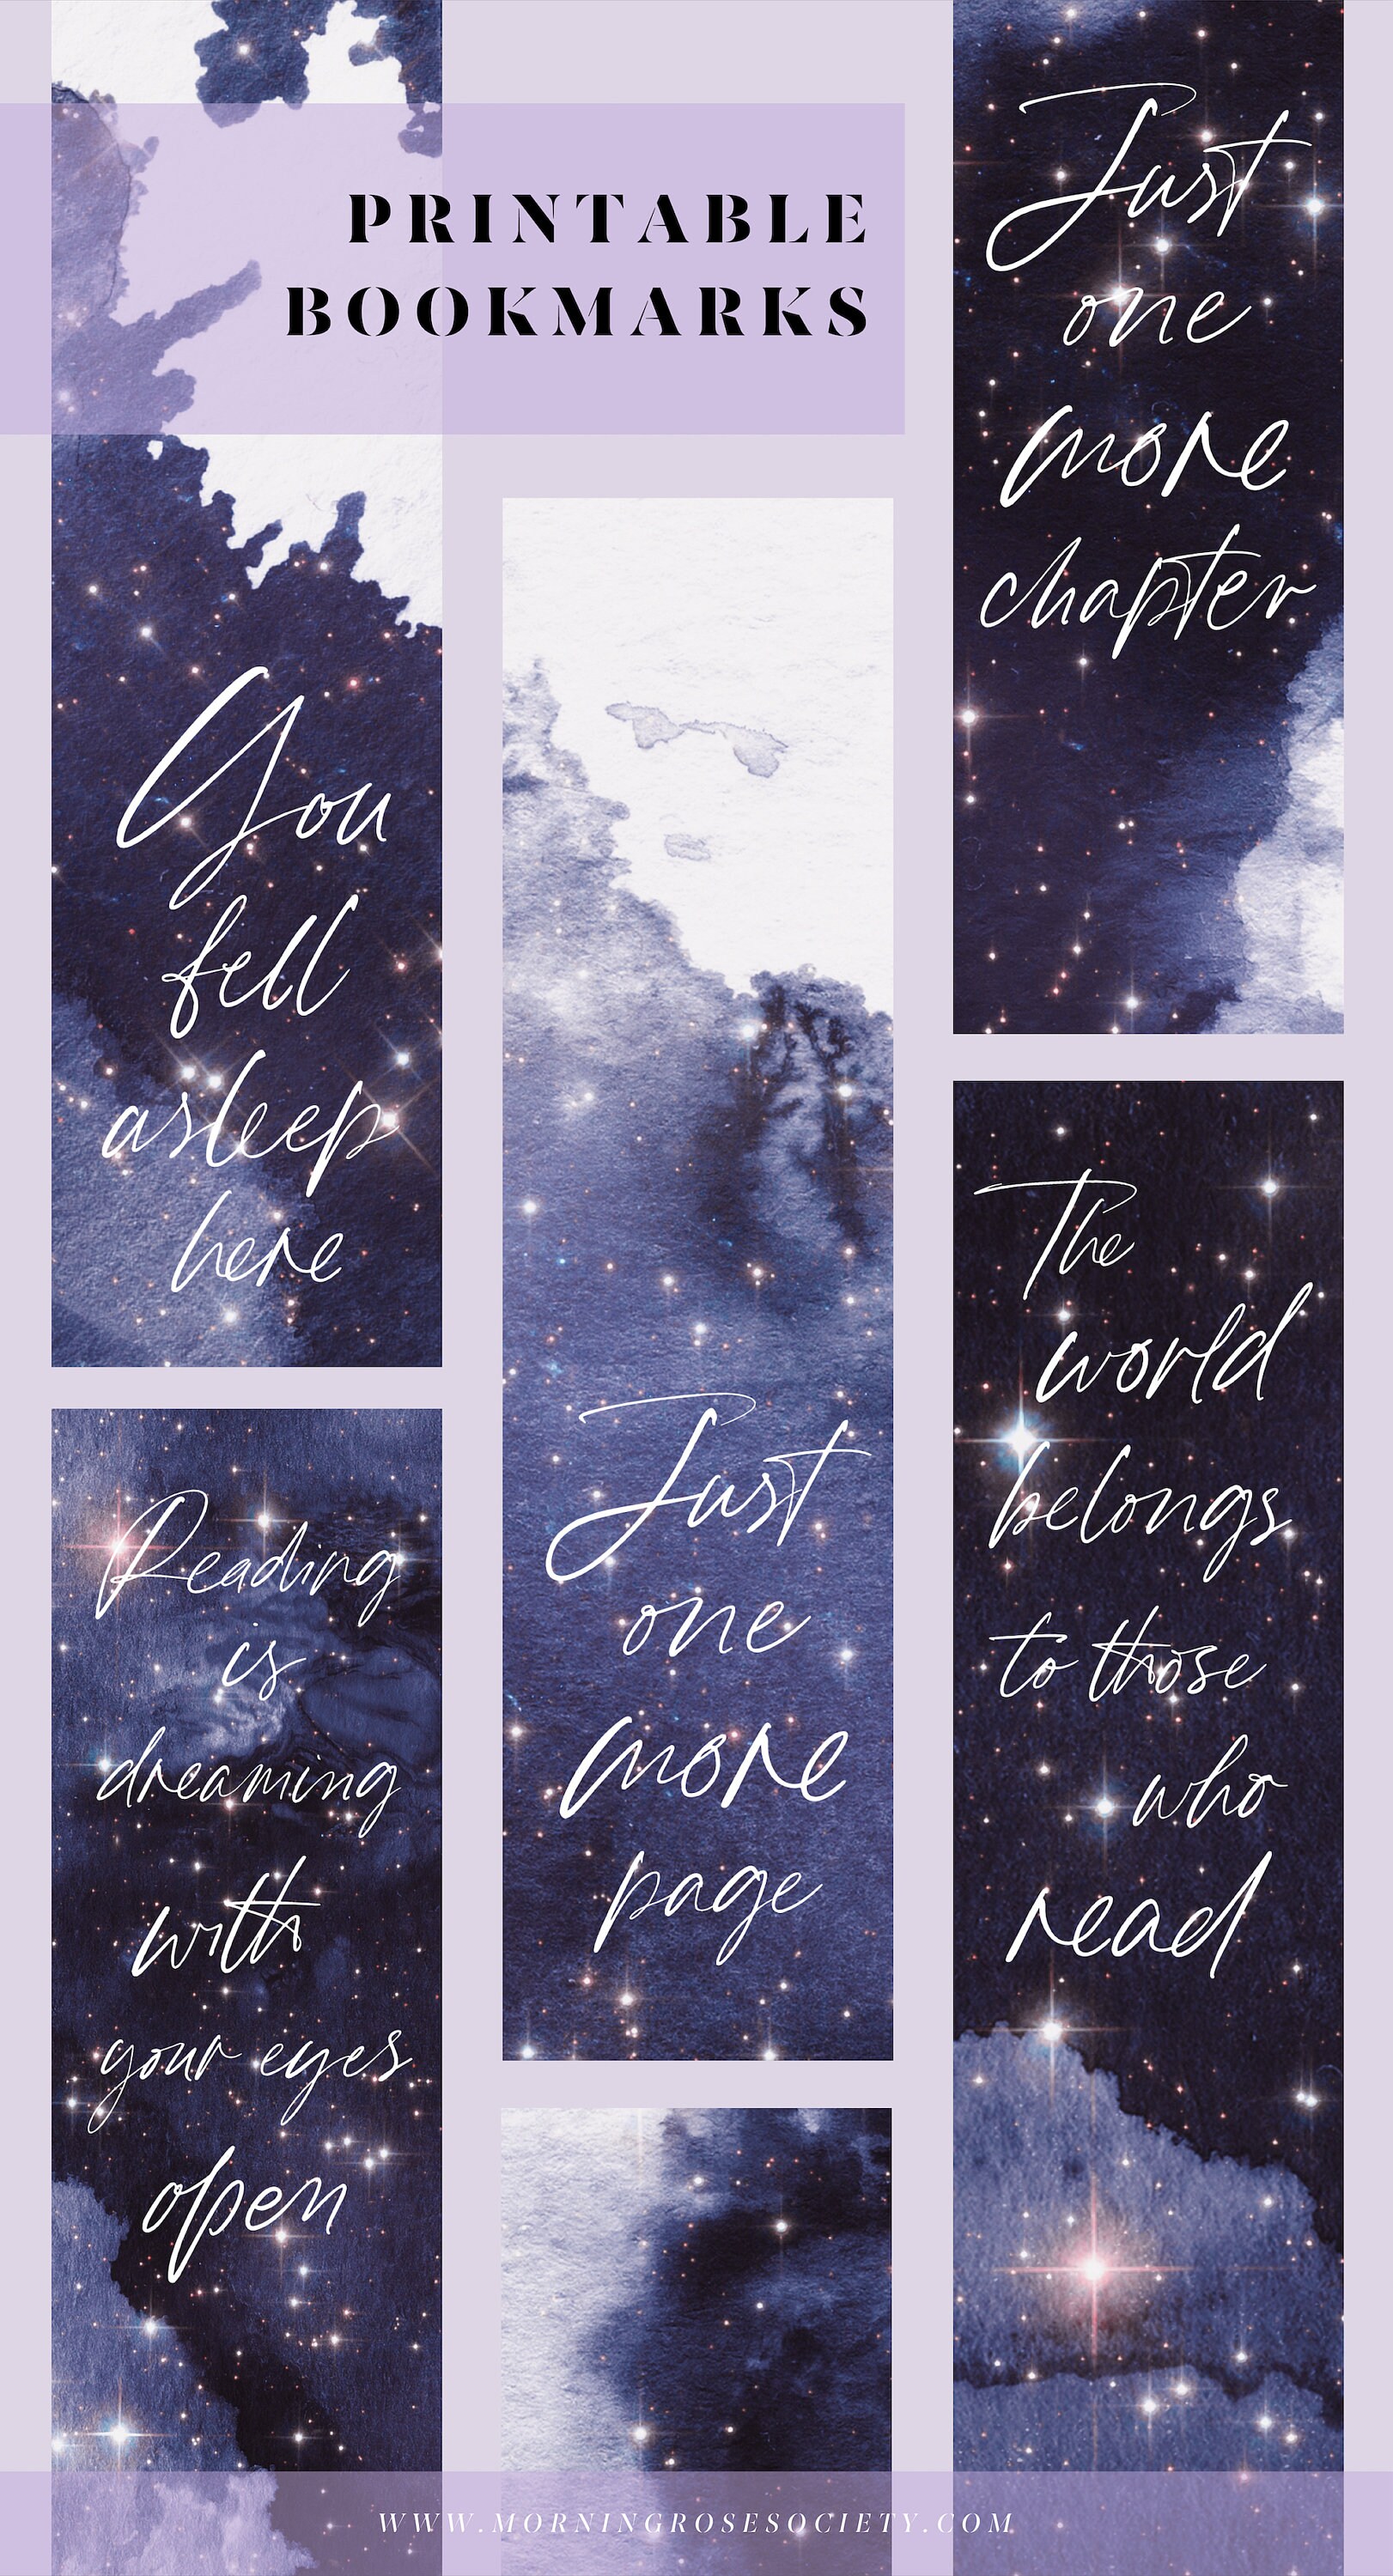 PRINTABLE
BOOKMARKS
You
fell
asleep
here
Reading
is
dreaming
with
your eyes
open
Just
one
more
page
Just
one
more
chapter
The
world
belongs
to those
who
read
WWW.MORNINGROSESOCIETY.COM